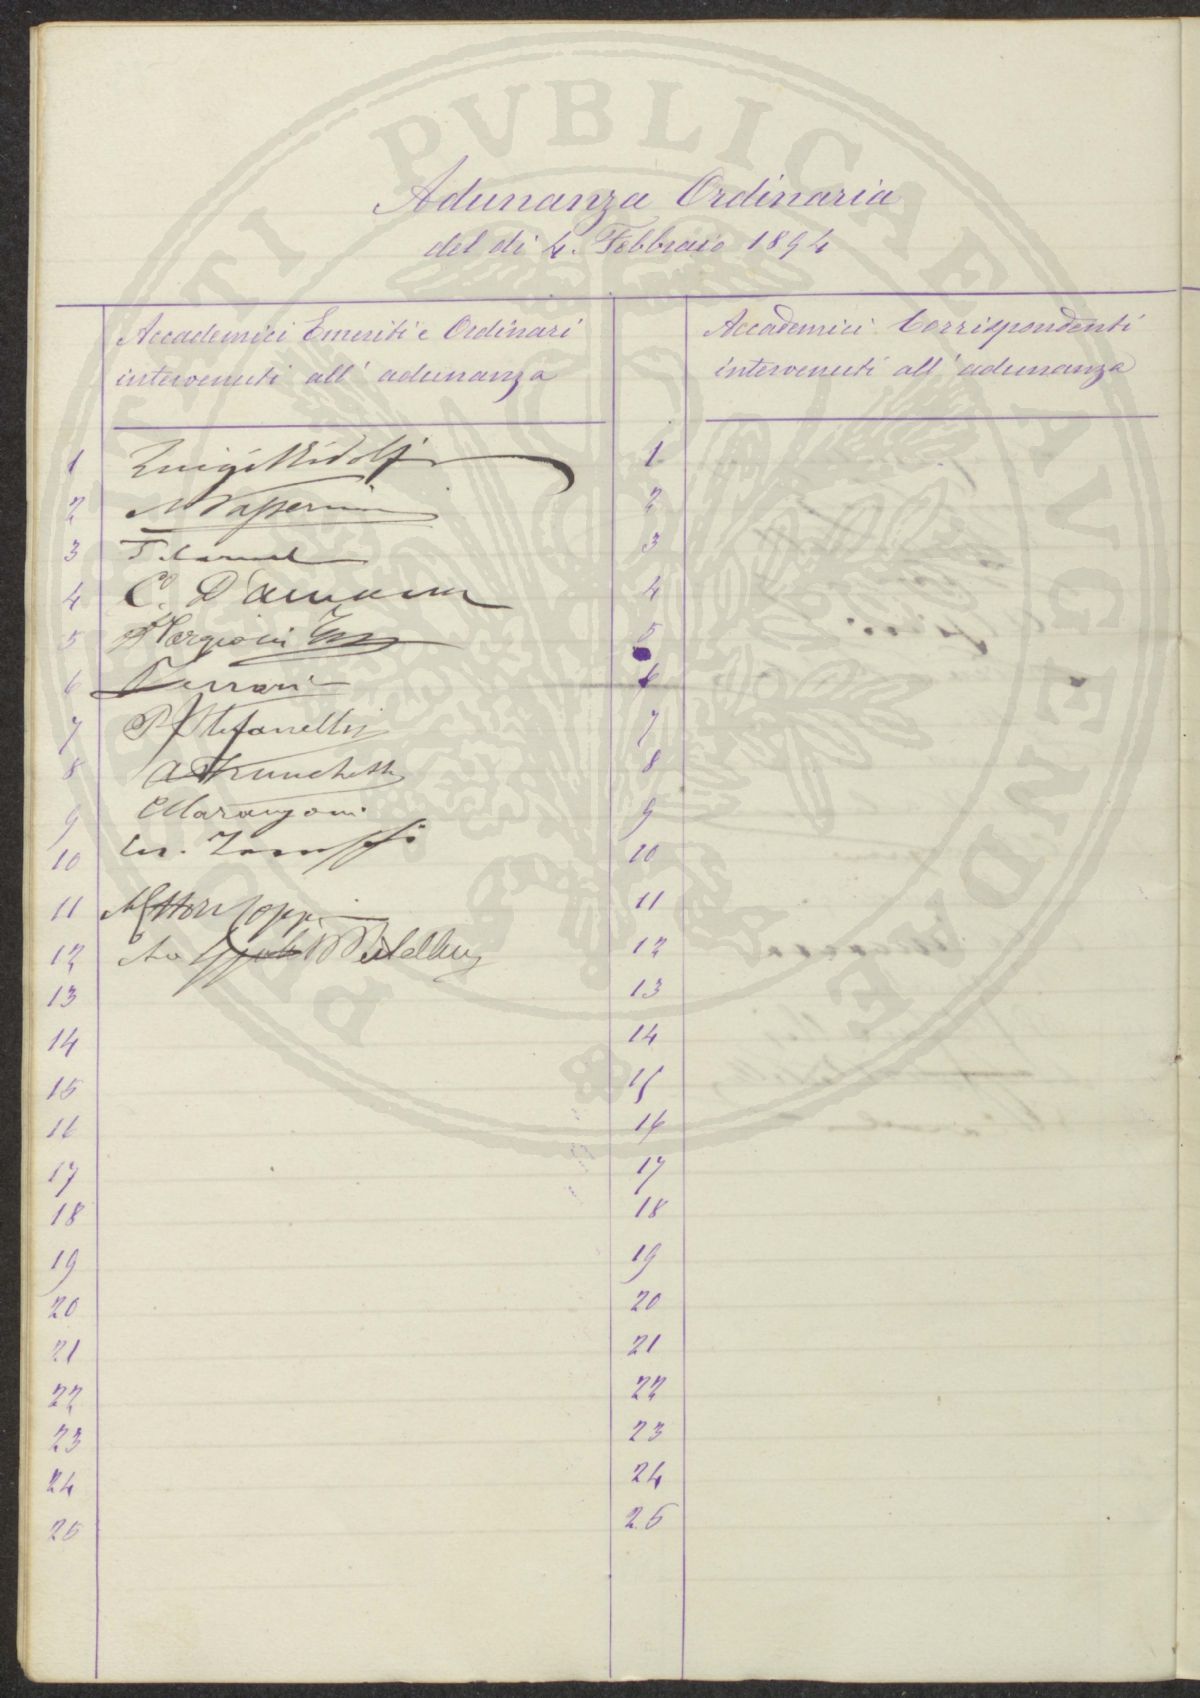 PVTATI PVBLICAE AVGENDAE
Adunanza Ordinaria
del dì 4. Febbraio 1894
Accademici Emeriti e Ordinari
intervenuti all' adunanza
Accademici Corrispondenti
intervenuti all' adunanza
1 Luigi Ridolfi
2
3
4 C. D'Ancona
5
6 Ferrari
7 P. Stefanelli
8
9 Marangoni
10
11
12
13
14
15
16
17
18
19
20
21
22
23
24
25
1
2
3
4
5
6
7
8
9
10
11
12
13
14
15
16
17
18
19
20
21
22
23
24
25